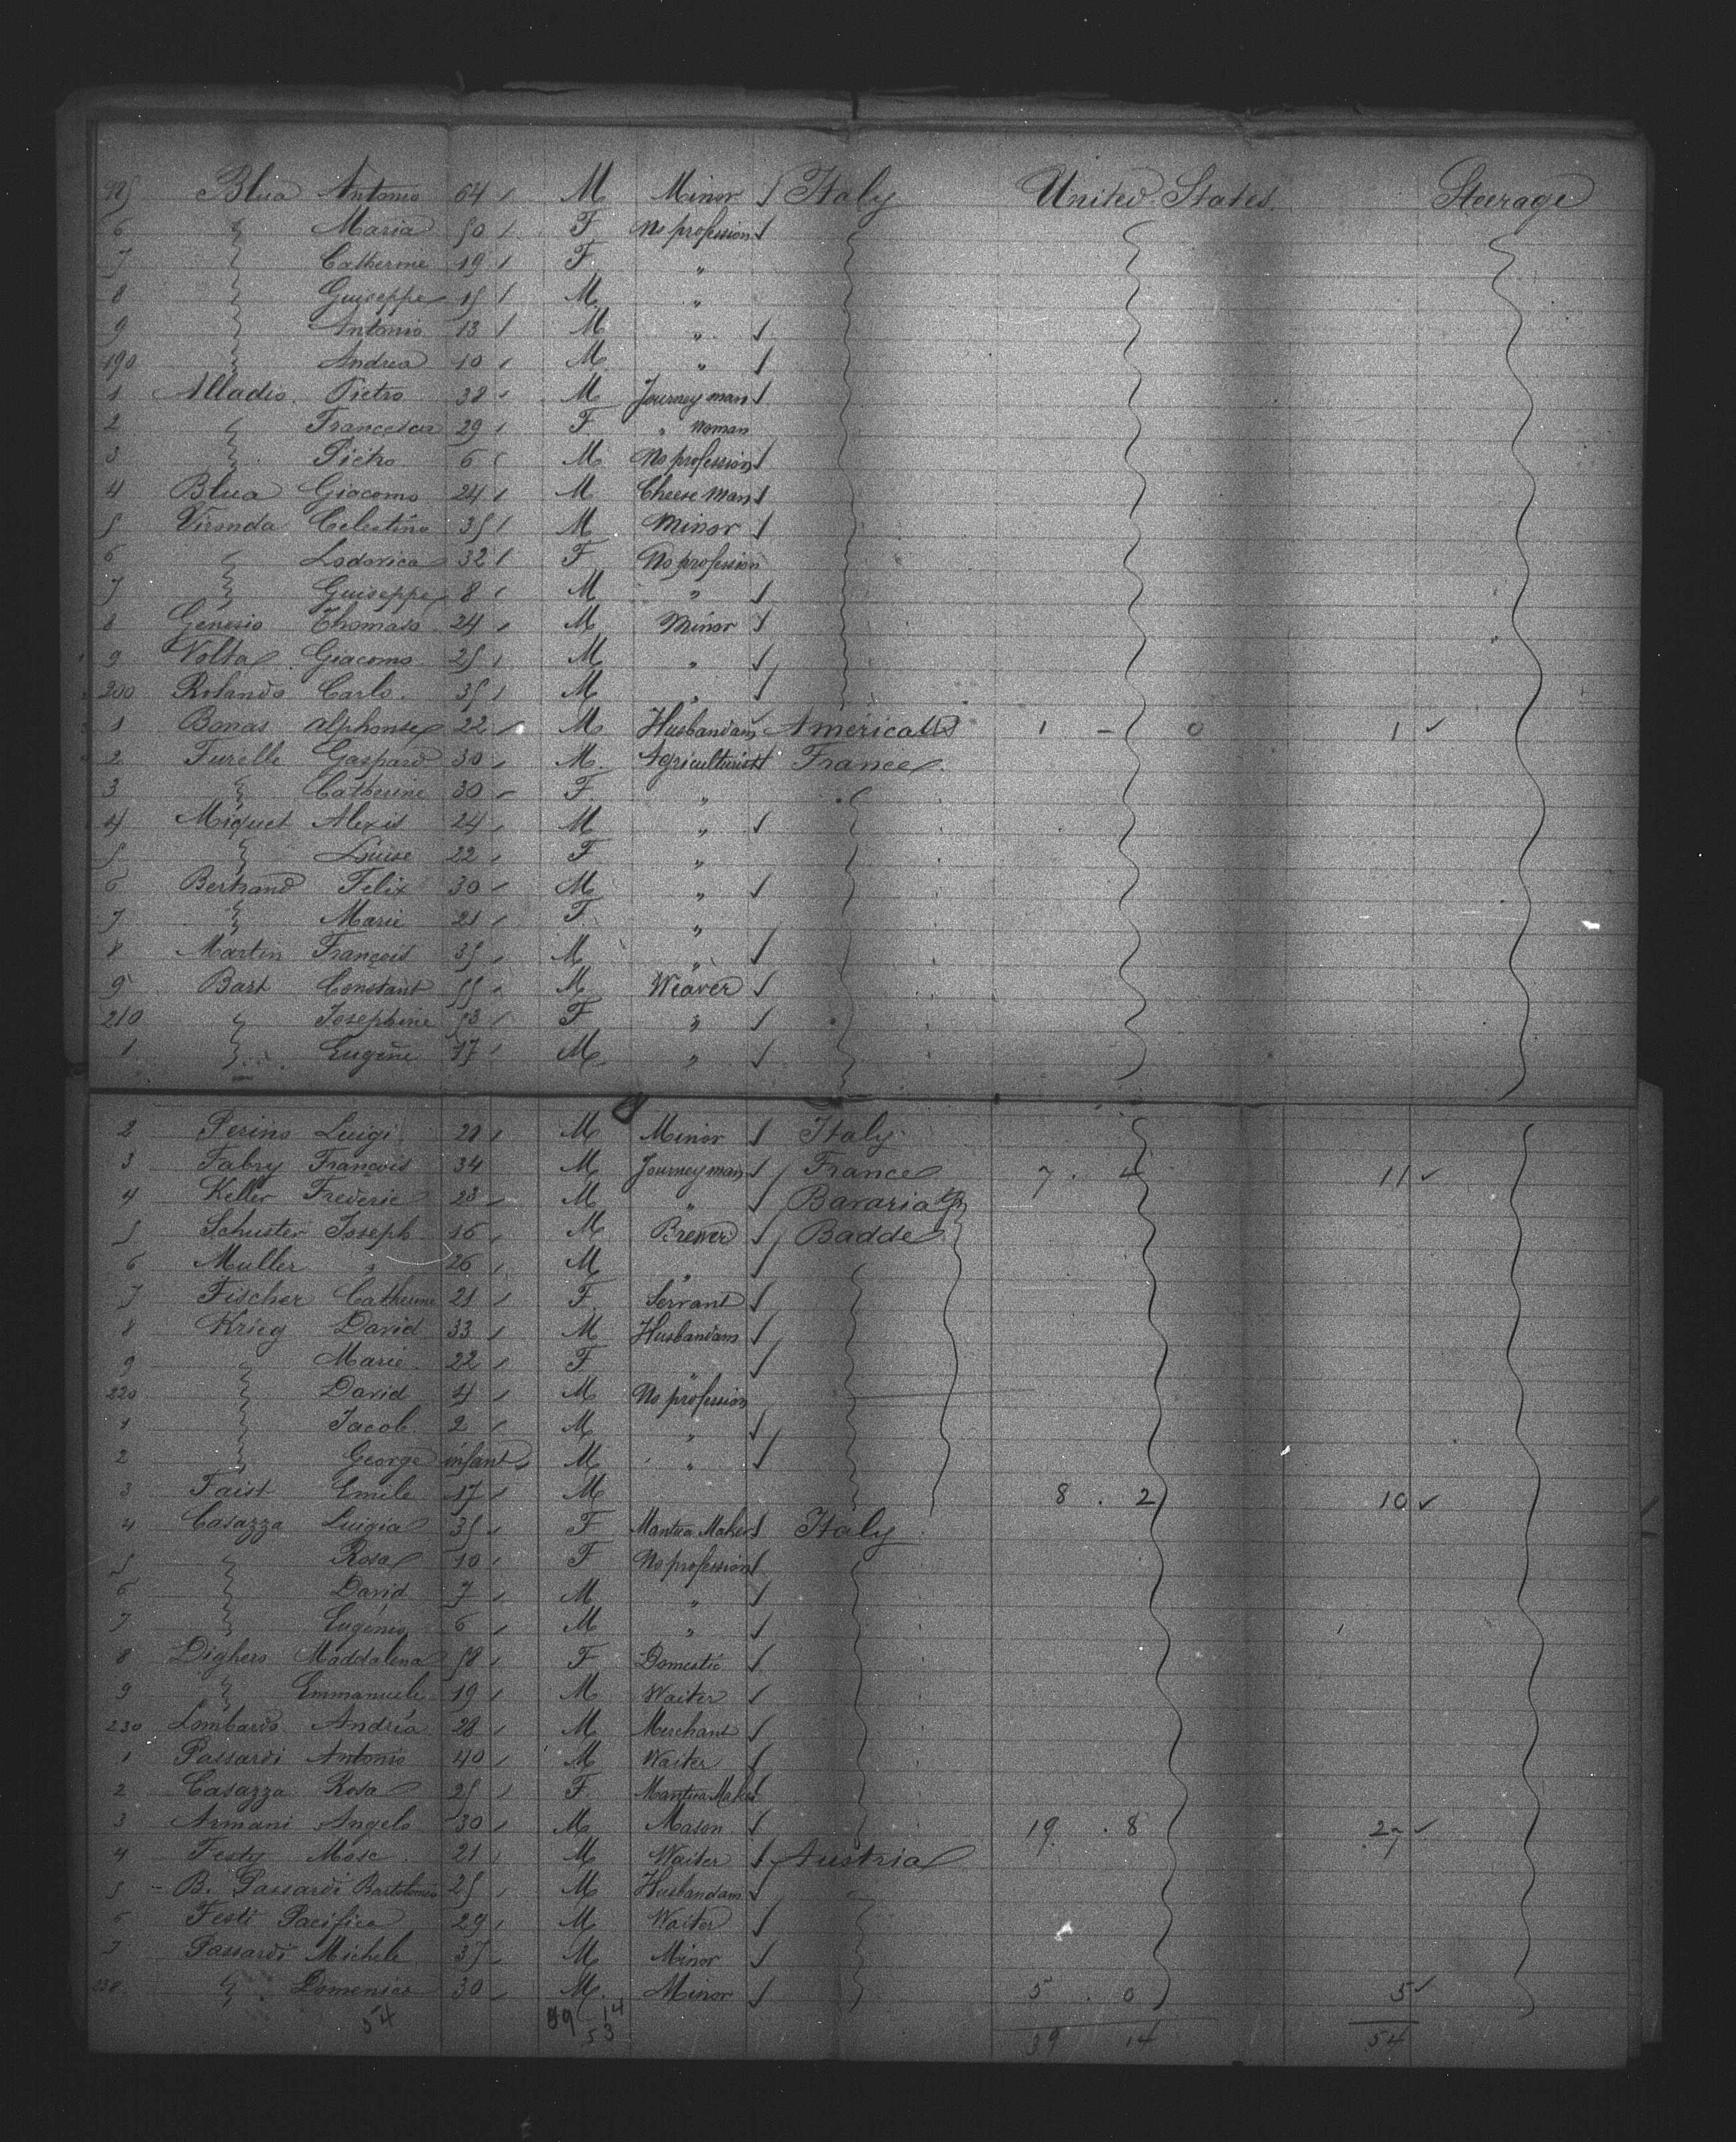 185 Blua Antonio 64 M Minor Italy United States Steerage
6 " Maria 50 F No profession
7 " Catherine 19 F "
8 " Guiseppe 15 M "
9 " Antonio 13 M "
190 " Andrea 10 M "
1 Alladio Pietro 38 M Journey man
2 " Francesca 29 F " woman
3 " Pietro 6 M No profession
4 Blua Giacomo 24 M Cheese man
5 Vironda Celestino 35 M Minor
6 " Lodovica 32 F No profession
7 " Guiseppe 8 M "
8 Genesio Thomaso 24 M Minor
9 Volta Giacomo 25 M "
200 Rolando Carlo 35 M "
1 Bonas Alphonse 22 M Husbandam America US 1 - 0 1
2 Turelle Gaspard 30 M Agriculturist France
3 " Catherine 30 F "
4 Miquet Alexis 24 M "
5 " Louise 22 F "
6 Bertrand Felix 30 M "
7 " Marie 21 F "
8 Martin François 35 M "
9 Bart Constant 55 M Weaver
210 " Josephine 53 F "
1 " Eugène 17 M "
2 Perino Luigi 20 M Minor Italy
3 Fabry François 34 M Journey man France 7 . 4 11
4 Keller Frederic 23 M " Bavaria
5 Schuster Joseph 16 M Brewer Badde
6 Muller " 26 M "
7 Fischer Catherine 21 F Servant
8 Krieg David 33 M Husbandam
9 " Marie 22 F "
220 " David 4 M No profession
1 " Jacob 2 M "
2 " George infant M "
3 Faist Emile 17 M 8 . 2 10
4 Casazza Luigia 35 F Mantua Maker Italy
5 " Rosa 10 F No profession
6 " David 7 M "
7 " Eugenio 6 M "
8 Dighero Maddalena 58 F Domestic
9 " Emmanuele 19 M Waiter
230 Lombardo Andréa 28 M Merchant
1 Passardi Antonio 40 M Waiter
2 Casazza Rosa 25 F Mantua Maker
3 Armani Angelo 30 M Mason 19 . 8 27
4 Festy Mose 21 M Waiter Austria
5 B. Passardi Bartolomeo 25 M Husbandam
6 Festi Pacifico 29 M Waiter
7 Passardi Michele 37 M Minor
238 " Domenico 30 M Minor 5 . 0 5
54 39 14 39 14 54
53